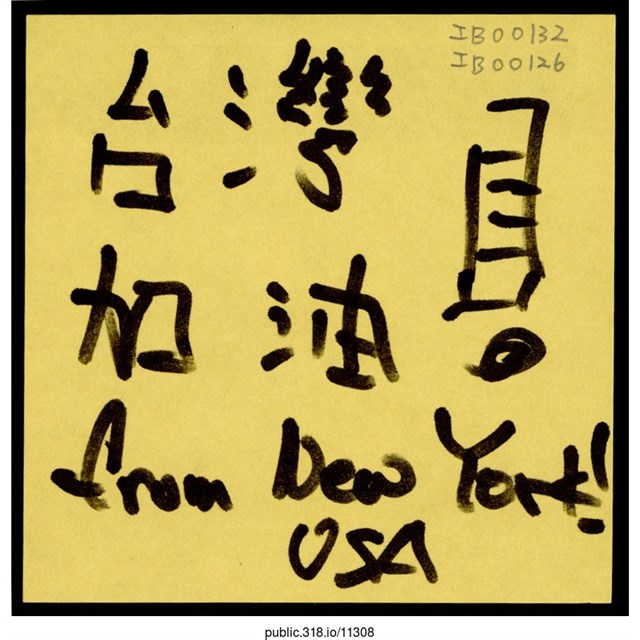 IB00132
IB00126
台灣
加油！
from New York!
USA
public.318.io/11308